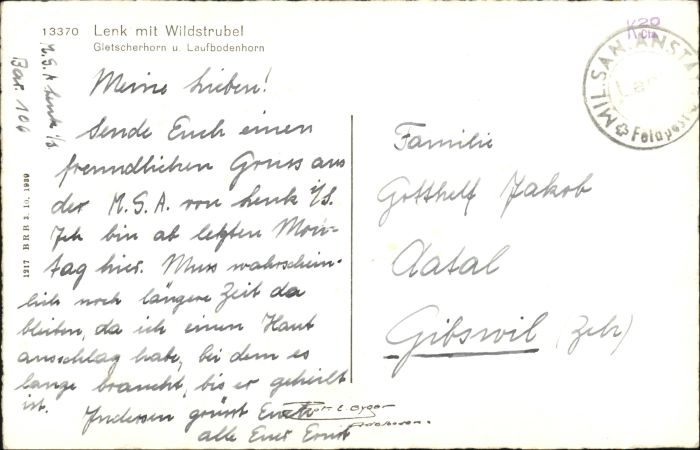 13370 Lenk mit Wildstrubel
Gletscherhorn u. Laufbodenhorn
M.S.A Lenk i/S
Bar. 106
1217 BRB 3. 10. 1939
Meine Lieben!
Sende Euch einen
freundlichen Gruss aus
der M.S.A. von Lenk i/S.
Ich bin ab letzten Mon-
tag hier. Muss wahrschein-
lich noch längere Zeit da
bleiben, da ich einen Haut
ausschlag habe, bei dem es
lange braucht, bis er geheilt
ist.
Indessen grüsst Euch
alle Euer Ernst
Phot. E. Gyger
Adelboden.
K 20
Cts
MIL. SAN. ANSTA
Feldpost
Familie
Gotthelf Jakob
Aatal
Gibswil (Zch)